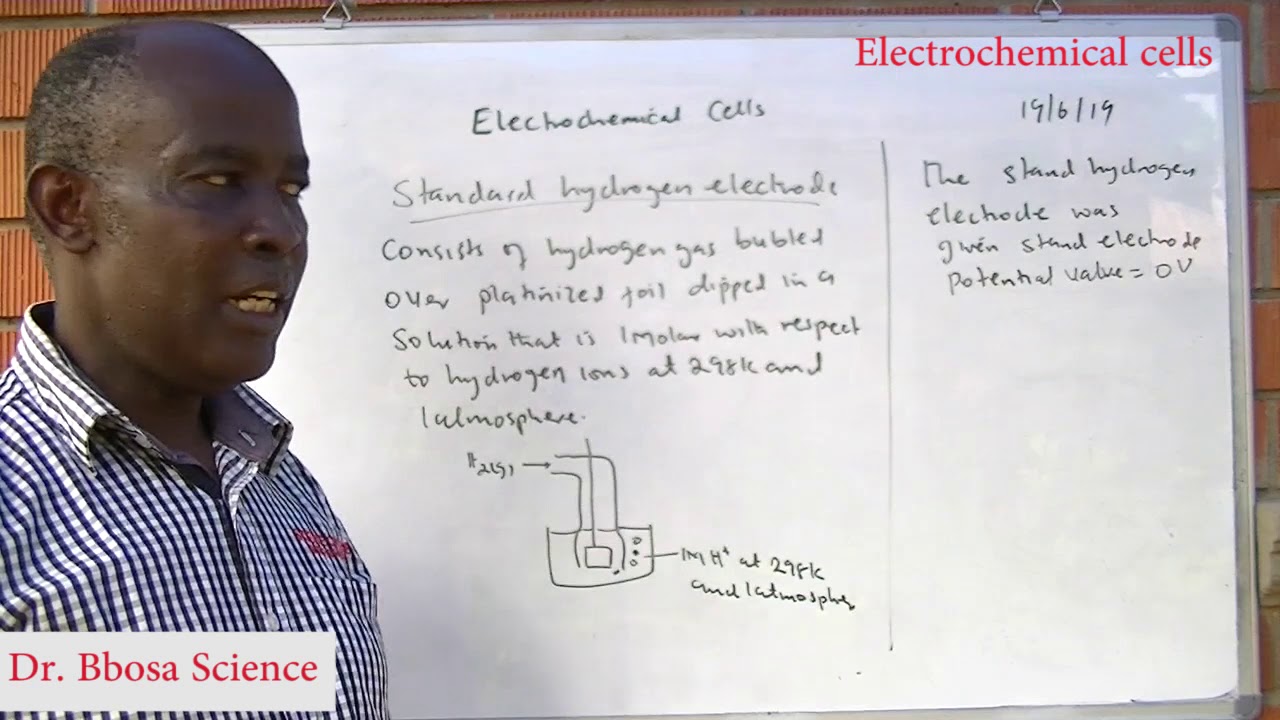 Electrochemical cells
Electrochemical Cells
19/6/19
Standard hydrogen electrode
Consists of hydrogen gas bubled
over platinized foil dipped in a
solution that is 1 Molar with respect
to hydrogen ions at 298K and
1 atmosphere.
H2(g)
1M H+ at 298K
and 1 atmospher
The stand hydrogen
electrode was
given stand electrode
potential value = 0V
Dr. Bbosa Science